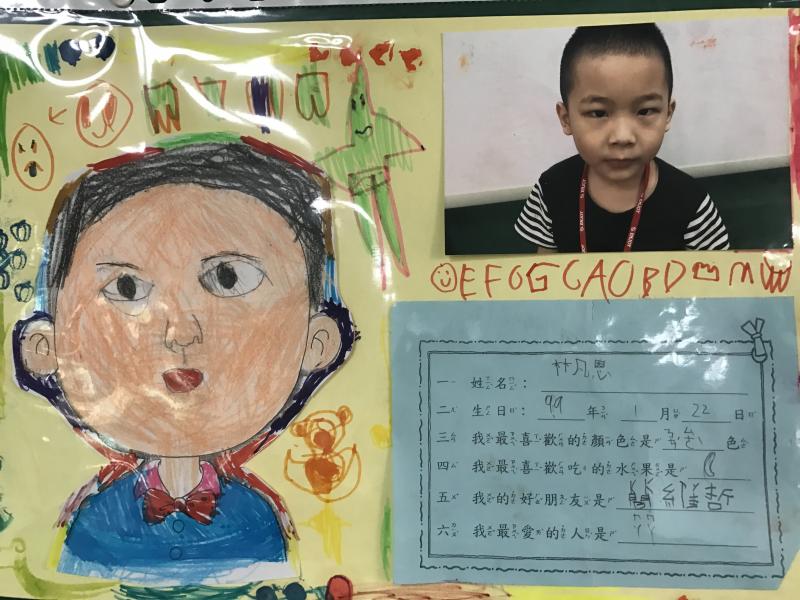 EFOGCAOBD
一、姓名:林凡恩
二、生日:99年1月22日
三、我最喜歡的顏色是ㄘㄞˇ色
四、我最喜歡吃的水果是
五、我的好朋友是
六、我最愛的人是ㄇㄇ